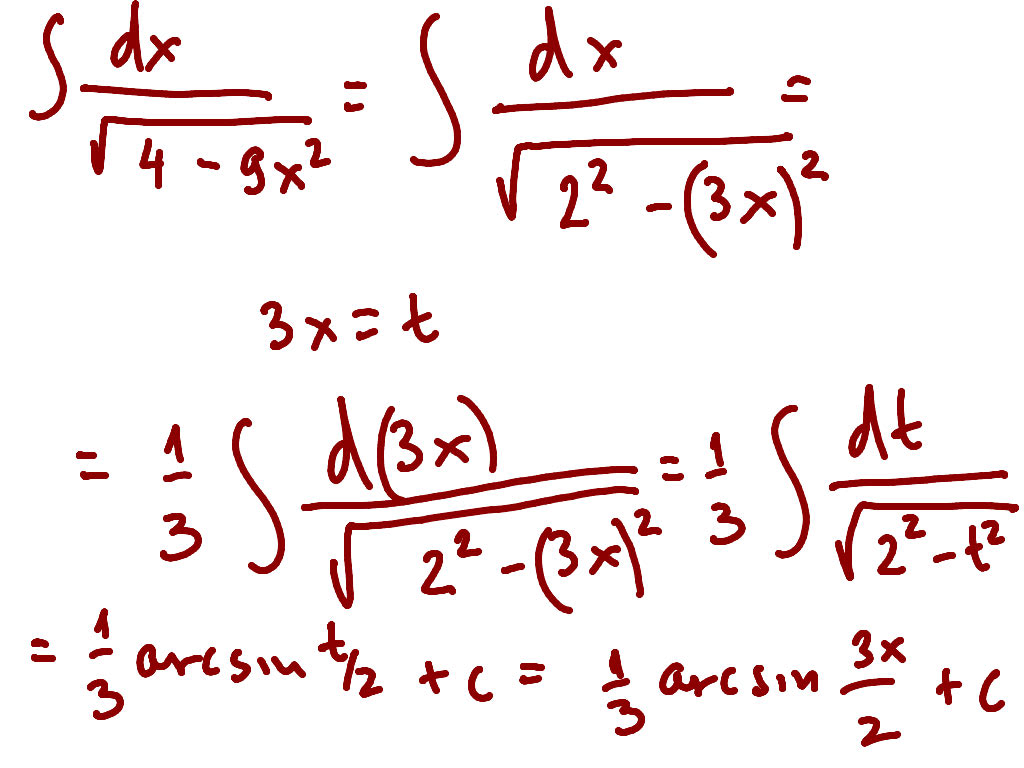 ∫ dx/√(4 - 9x²) = ∫ dx/√(2² - (3x)²) =
3x = t
= 1/3 ∫ d(3x)/√(2² - (3x)²) = 1/3 ∫ dt/√(2² - t²)
= 1/3 arcsin t/2 + c = 1/3 arcsin 3x/2 + c